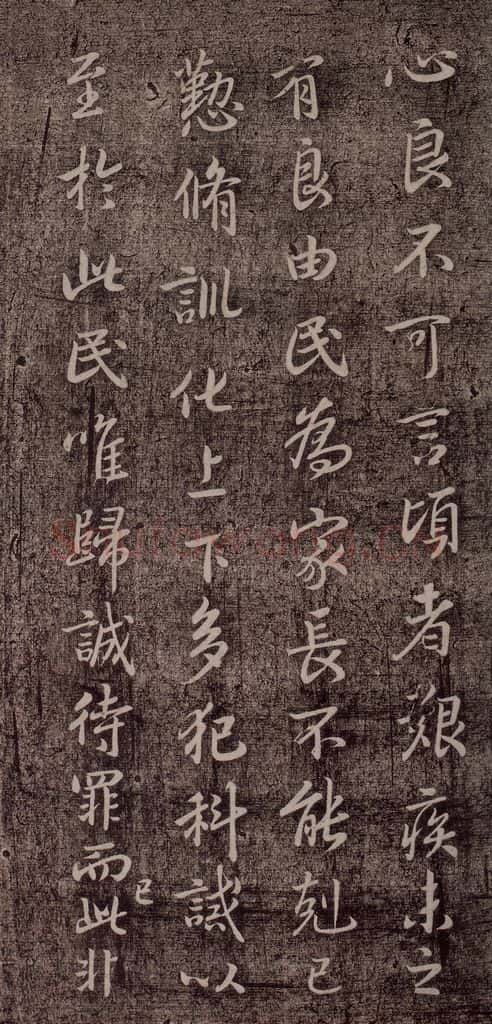 心良不可言頃者艱疾未之
有良由民為家長不能剋己
懃脩訓化上下多犯科誡以
至於此民唯歸誠待罪而此非
已